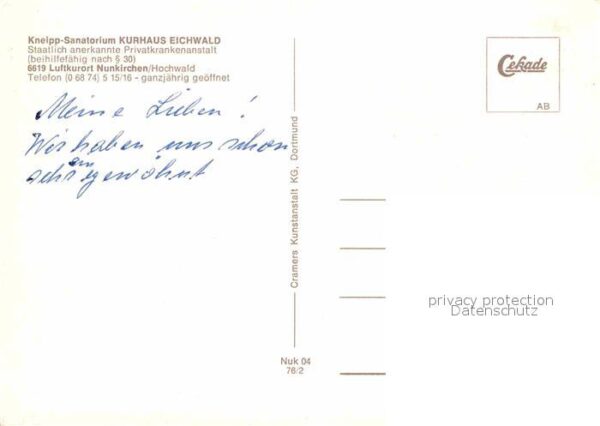 Kneipp-Sanatorium KURHAUS EICHWALD
Staatlich anerkannte Privatkrankenanstalt
(beihilfefähig nach § 30)
6619 Luftkurort Nunkirchen/Hochwald
Telefon (0 68 74) 5 15/16 - ganzjährig geöffnet
Meine Lieben!
Wir haben uns schon
ein
gewöhnt
Cramers Kunstanstalt KG, Dortmund
Nuk 04
76/2
Cekade
AB
privacy protection
Datenschutz